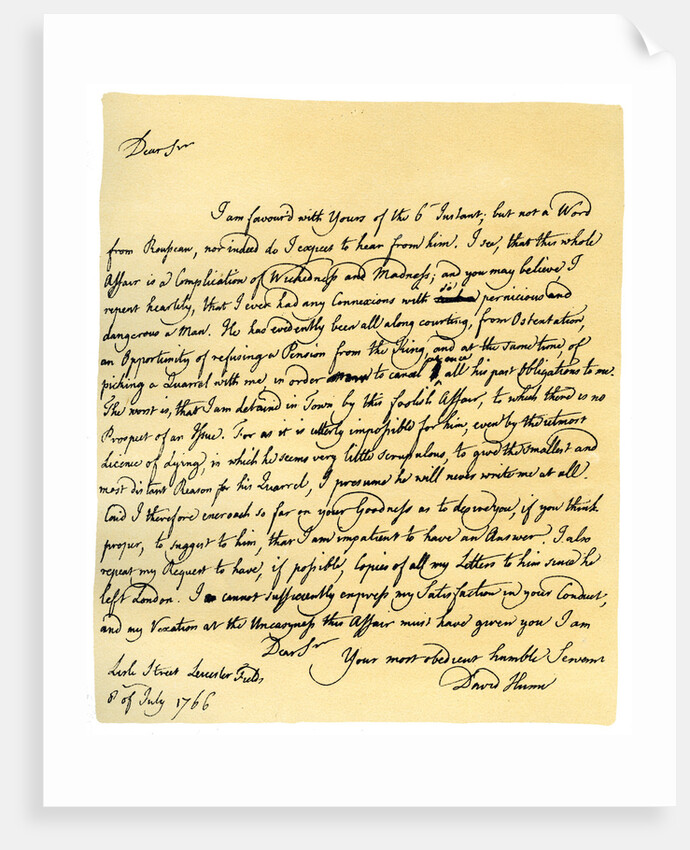 Dear Sir
I am favour'd with Yours of the 6th Instant; but not a Word
from Rousseau, nor indeed do I expect to hear from him. I see, that this whole
Affair is a Complication of Wickedness and Madness; and you may believe, I
repent heartily, that I ever had any Connexions with so pernicious and
dangerous a Man. He has evidently been all along courting, from Ostentation,
an Opportunity of refusing a Pension from the King, and at the same time, of
picking a Quarrel with me, in order to cancel all his past Obligations to me.
The worst is, that I am detain'd in Town by this foolish Affair, to which there is no
Prospect of an Issue. For as it is utterly impossible for him, even by the utmost
Licence of Lying, in which he seems very little scrupulous, to give the smallest and
most distant Reason for his Quarrel, I presume he will never write me at all.
Coud I therefore encroach so far on your Goodness as to desire you, if you think
proper, to suggest to him, that I am impatient to have an Answer. I also
repeat my Request to have, if possible, Copies of all my Letters to him since he
left London. I cannot sufficiently express my Satisfaction in your Conduct,
and my Vexation at the Uneasyness this Affair must have given you I am
Dear Sir
Your most obedient humble Servant
David Hume
Lisle Street Leicester Fields
8th of July 1766